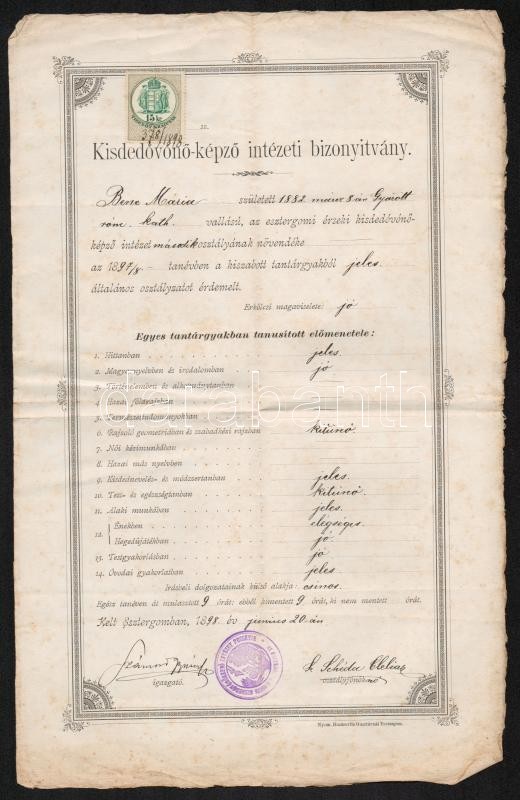 15 kr.
378/1898
sz.
Kisdedóvónő-képző intézeti bizonyitvány.
Bene Mária született 1882 márc 8-án Győrött
róm. kath. vallású, az esztergomi érseki kisdedóvónő-
képző intézet második osztályának növendéke
az 1897/8 - tanévben a kiszabott tantárgyakból jeles
általános osztályzatot érdemelt.
Erkölcsi magaviselete: jó
Egyes tantárgyakban tanusított előmenetele:
1. Hittanban jeles.
2. Magyar nyelvben és irodalomban jó
3. Történelemben és alkotmánytanban
4. Hazai földrajzban
5. Természettudományokban
6. Rajzoló geometriában és szabadkézi rajzban kitünő.
7. Női kézimunkában
8. Hazai más nyelvben
9. Kisdednevelés- és módszertanban jeles.
10. Test- és egészségtanban kitünő.
11. Alaki munkában jeles.
12. Énekben elégséges.
Hegedüjátékban jó.
13. Testgyakorlásban jó
14. Óvodai gyakorlatban jeles
Irásbeli dolgozatainak külső alakja: csinos.
Egész tanéven át mulasztott 9 órát: ebből kimentett 9 órát, ki nem mentett órát.
Kelt Esztergomban, 1898. év junius 20-án
igazgató.
osztályfőnöknő
darabanth